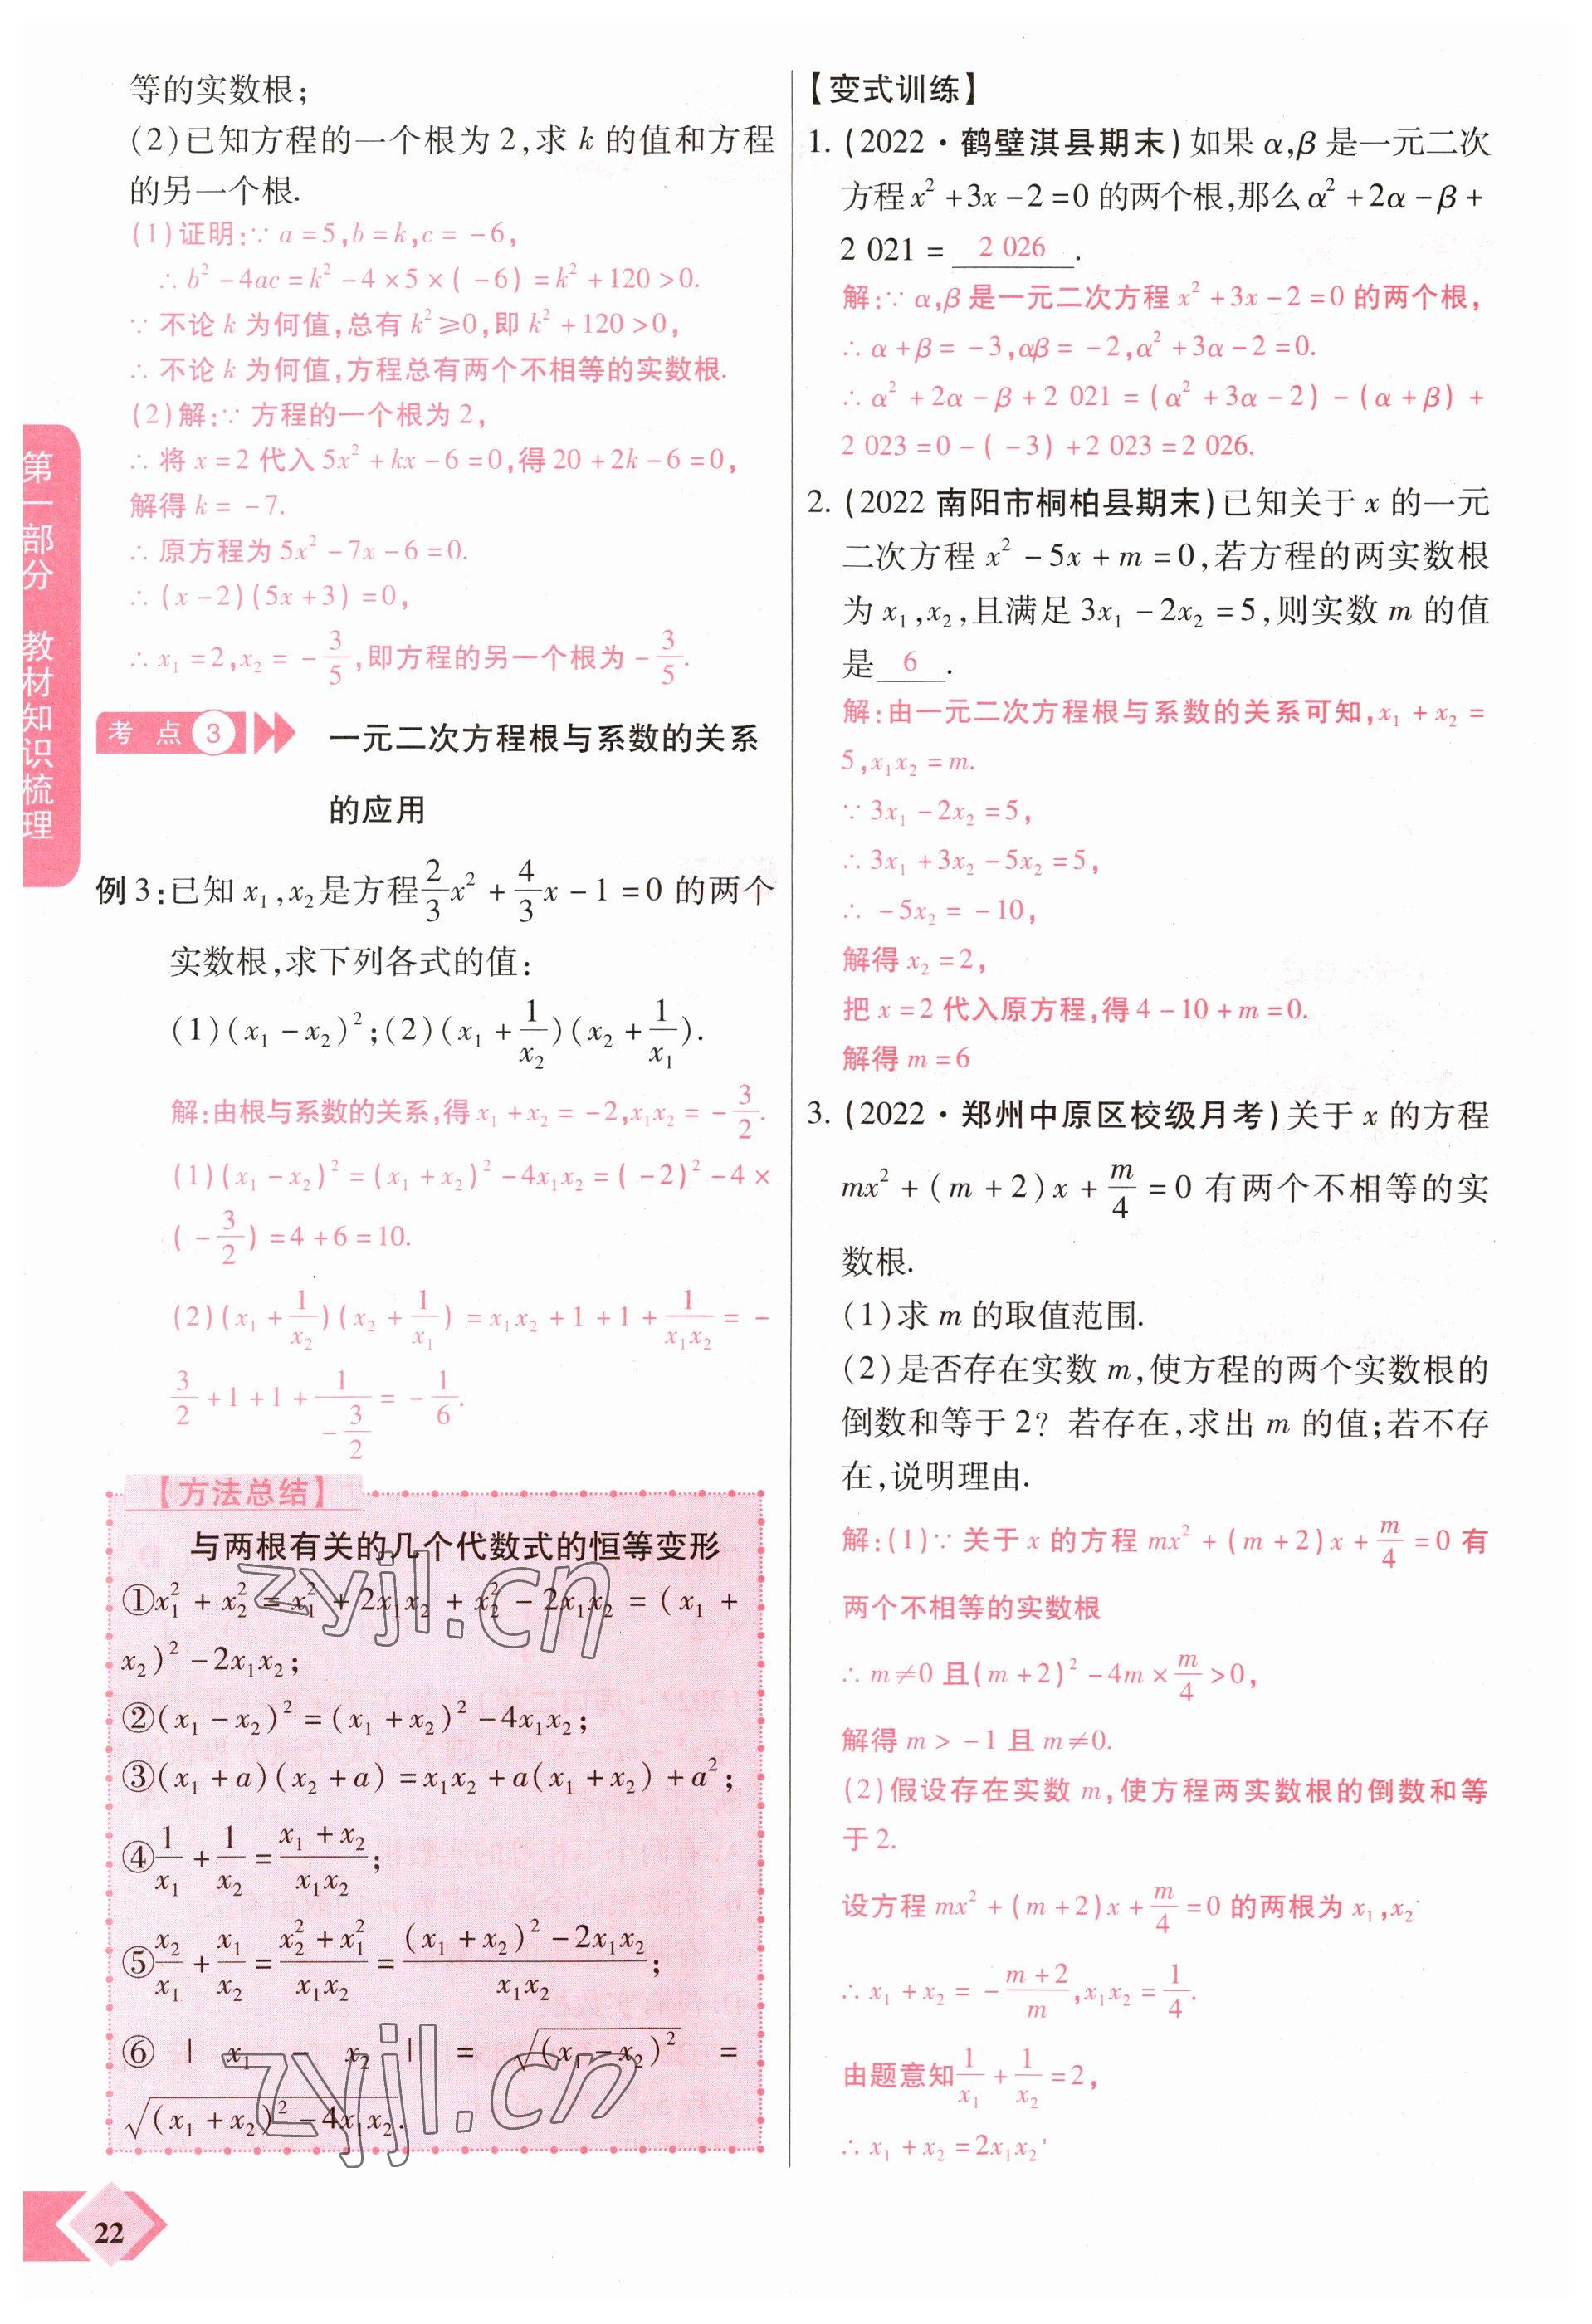 等的实数根;
(2)已知方程的一个根为2,求 k 的值和方程
的另一个根.
(1)证明:∵ a=5,b=k,c=-6,
∴ b²-4ac=k²-4×5×(-6)=k²+120>0.
∵ 不论 k 为何值,总有 k²≥0,即 k²+120>0,
∴ 不论 k 为何值,方程总有两个不相等的实数根.
(2)解:∵ 方程的一个根为2,
∴ 将 x=2 代入 5x²+kx-6=0,得 20+2k-6=0,
解得 k=-7.
∴ 原方程为 5x²-7x-6=0.
∴ (x-2)(5x+3)=0,
∴ x₁=2,x₂=-3/5,即方程的另一个根为-3/5.
考 点 3 一元二次方程根与系数的关系
的应用
例3:已知 x₁,x₂是方程2/3x²+4/3x-1=0 的两个
实数根,求下列各式的值:
(1)(x₁-x₂)²;(2)(x₁+1/x₂)(x₂+1/x₁).
解:由根与系数的关系,得 x₁+x₂=-2,x₁x₂=-3/2.
(1)(x₁-x₂)²=(x₁+x₂)²-4x₁x₂=(-2)²-4×
(-3/2)=4+6=10.
(2)(x₁+1/x₂)(x₂+1/x₁)=x₁x₂+1+1+1/(x₁x₂)=-
3/2+1+1+1/(-3/2)=-1/6.
【方法总结】
与两根有关的几个代数式的恒等变形
①x₁²+x₂²=x₁²+2x₁x₂+x₂²-2x₁x₂=(x₁+
x₂)²-2x₁x₂;
②(x₁-x₂)²=(x₁+x₂)²-4x₁x₂;
③(x₁+a)(x₂+a)=x₁x₂+a(x₁+x₂)+a²;
④1/x₁+1/x₂=(x₁+x₂)/(x₁x₂);
⑤x₂/x₁+x₁/x₂=(x₂²+x₁²)/(x₁x₂)=((x₁+x₂)²-2x₁x₂)/(x₁x₂);
⑥|x₁-x₂|=√(x₁-x₂)²=
√(x₁+x₂)²-4x₁x₂.
zyjl.cn
zyjl.cn
第一部分 教材知识梳理
22
【变式训练】
1.(2022·鹤壁淇县期末)如果 α,β 是一元二次
方程 x²+3x-2=0 的两个根,那么 α²+2α-β+
2 021= 2 026 .
解:∵ α,β 是一元二次方程 x²+3x-2=0 的两个根,
∴ α+β=-3,αβ=-2,α²+3α-2=0.
∴ α²+2α-β+2 021=(α²+3α-2)-(α+β)+
2 023=0-(-3)+2 023=2 026.
2.(2022 南阳市桐柏县期末)已知关于 x 的一元
二次方程 x²-5x+m=0,若方程的两实数根
为 x₁,x₂,且满足 3x₁-2x₂=5,则实数 m 的值
是 6 .
解:由一元二次方程根与系数的关系可知,x₁+x₂=
5,x₁x₂=m.
∵ 3x₁-2x₂=5,
∴ 3x₁+3x₂-5x₂=5,
∴ -5x₂=-10,
解得 x₂=2,
把 x=2 代入原方程,得 4-10+m=0.
解得 m=6
3.(2022·郑州中原区校级月考)关于 x 的方程
mx²+(m+2)x+m/4=0 有两个不相等的实
数根.
(1)求 m 的取值范围.
(2)是否存在实数 m,使方程的两个实数根的
倒数和等于2? 若存在,求出 m 的值;若不存
在,说明理由.
解:(1)∵ 关于 x 的方程 mx²+(m+2)x+m/4=0 有
两个不相等的实数根
∴ m≠0 且(m+2)²-4m×m/4>0,
解得 m>-1 且 m≠0.
(2)假设存在实数 m,使方程两实数根的倒数和等
于2.
设方程 mx²+(m+2)x+m/4=0 的两根为 x₁,x₂.
∴ x₁+x₂=-(m+2)/m,x₁x₂=1/4.
由题意知1/x₁+1/x₂=2,
∴ x₁+x₂=2x₁x₂.